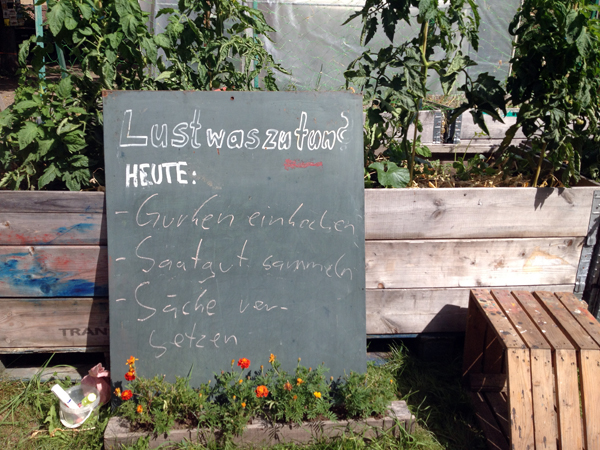 Lust was zu tun?
HEUTE:
- Gurken einkochen
- Saatgut sammeln
- Säcke ver-
setzen
TRAN